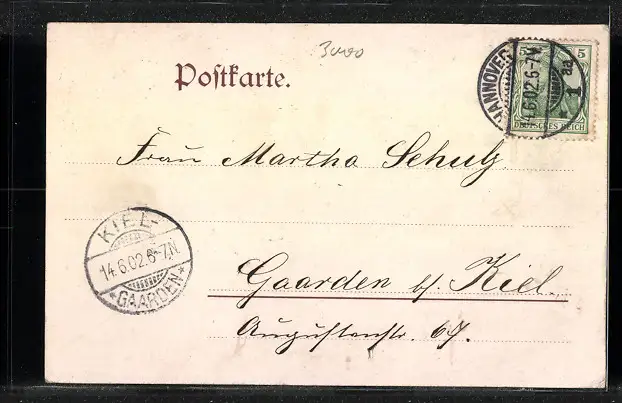 Postkarte.
5 5
DEUTSCHES REICH
HANNOVER
14.6.02.6-7N.
1 aa
Frau Martha Schulz
KIEL-
14.6.02.6-7.N.
*GAARDEN*
Gaarden b/. Kiel.
Augustenstr. 67.